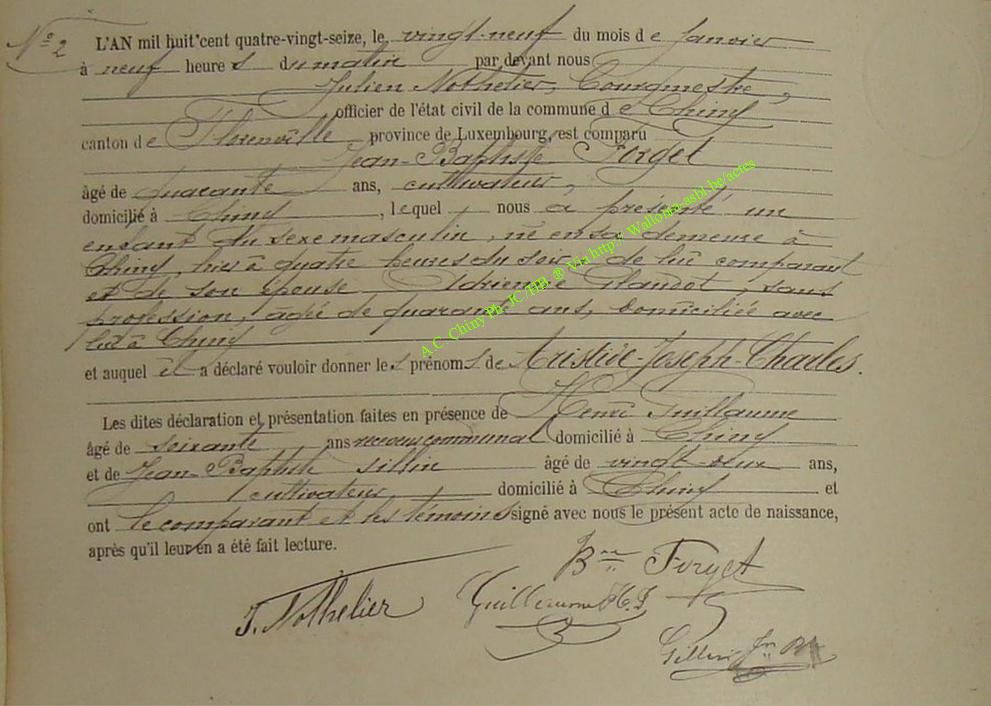 N° 2
L'AN mil huit cent quatre-vingt-seize, le vingt-neuf du mois de Janvier
à neuf heures du matin par devant nous
Julien Nothelier, Bourgmestre,
officier de l'état civil de la commune de Chiny
canton de Florenville province de Luxembourg, est comparu
Jean-Baptiste Forget
âgé de quarante ans, cultivateur,
domicilié à Chiny, lequel nous a présenté un
enfant du sexe masculin, né en sa demeure à
Chiny, hier à quatre heures du soir, de lui comparant
et de son épouse Adrienne Claudot, sans
profession, agée de quarante ans, domiciliée avec
lui à Chiny
et auquel il a déclaré vouloir donner les prénoms de Aristide-Joseph-Charles.
Les dites déclaration et présentation faites en présence de Henri Guillaume
âgé de soixante ans receveur communal domicilié à Chiny
et de Jean-Baptiste Gillin âgé de vingt-deux ans,
cultivateur domicilié à Chiny et
ont le comparant et les témoins signé avec nous le présent acte de naissance,
après qu'il leur en a été fait lecture.
Bte Forget
J. Nothelier
Guillaume H. J.
Gillin Jn Bte
A.C. Chiny Ph. JC/HB. ® Via http:// Wallonia-asbl.be/actes